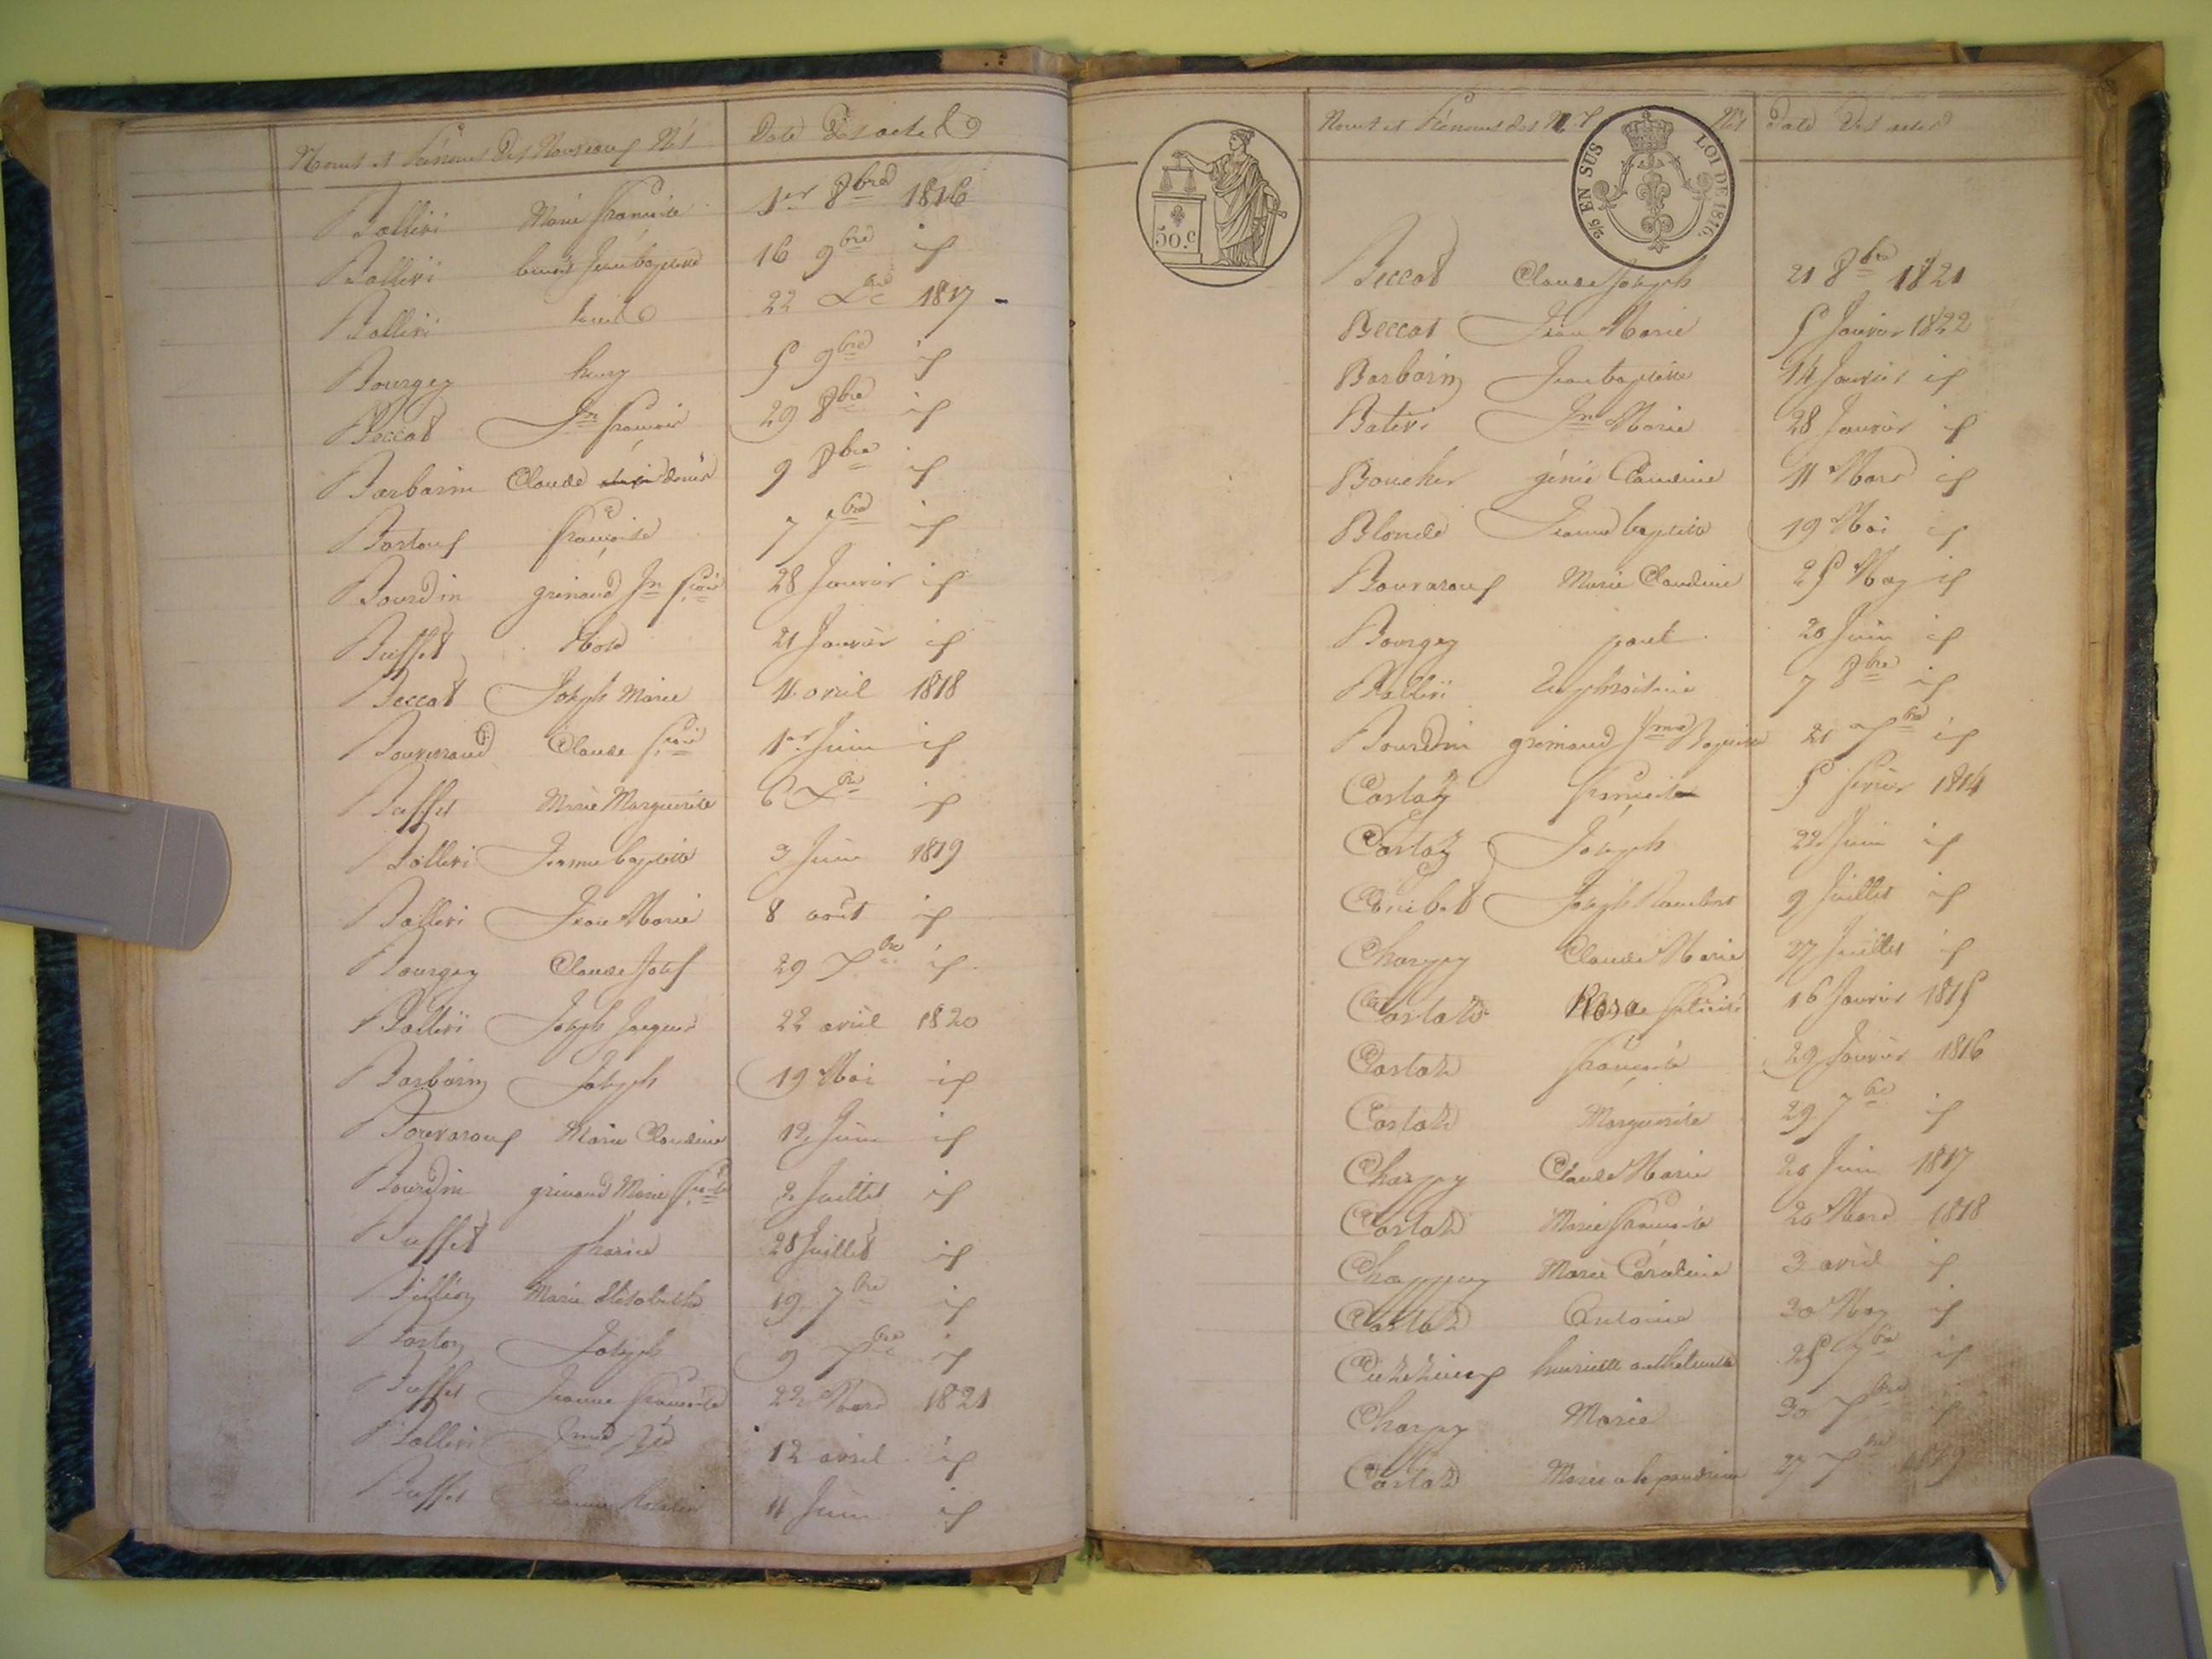 Noms et Prénoms Des Nouveaux Nés Date Des actes
Balleri Marie françoise 1er 8bre 1816
Balleri benoit Jean baptiste 16 9bre id
Balleri louis 22 Xbre 1817
Bourgey henry 5 9bre id
Beccat Jn françois 29 8bre id
Barbarin Claude denis 9 8bre id
françoise 7 7bre id
Bourdin grimaud Jn fçois 28 Janvier id
Buffet 21 Janvier id
Beccat Joseph Marie 11 avril 1818
Claude fçois 1er Juin id
Buffet Marie Marguerite 6 Xbre id
Balleri Jeanne baptiste 3 Juin 1819
Balleri Jean Marie 8 août id
Bourgey Claude Josef 29 Xbre id
Balleri Joseph Jacques 22 avril 1820
Barbarin Joseph 19 Mai id
Marie Claudine 12 Juin id
Bourdin grimaud Marie 2 Juillet id
Buffet 28 Juillet id
Marie Elisabeth 19 7bre id
Joseph 9 Xbre id
Buffet Jeanne françoise 22 Mars 1821
Balleri 12 avril id
Buffet Jeanne 11 Juin id
50.c
2/5 EN SUS LOI DE 1816.
Noms et Prénoms des Nés Date Des actes
Beccat Claude Joseph 21 8bre 1821
Beccat Jean Marie 5 Janvier 1822
Barbarin Jean baptiste 14 Janvier id
Jn Marie 28 Janvier id
Boucher génie Claudine 11 Mars id
Blonde Jeanne baptiste 19 Mai id
Marie Claudine 25 May id
Bourgey paul 20 Juin id
Balleri 7 8bre id
Bourdin grimaud 21 Xbre id
Castaz françoise 5 fevrier 1814
Castaz Joseph 22 Juin id
Joseph 9 Juillet id
Charpy Claude Marie 27 Juillet id
Castaz Rosa félicité 16 Janvier 1815
Castaz françoise 29 Janvier 1816
Castaz Marguerite 29 7bre id
Charpy Claude Marie 20 Juin 1817
Castaz Marie françoise 20 Mars 1818
Marie Caroline 3 avril id
Castaz Antoine 30 May id
henriette 25 7bre id
Charpy Marie 30 Xbre id
Castaz Marie 27 Xbre 1819